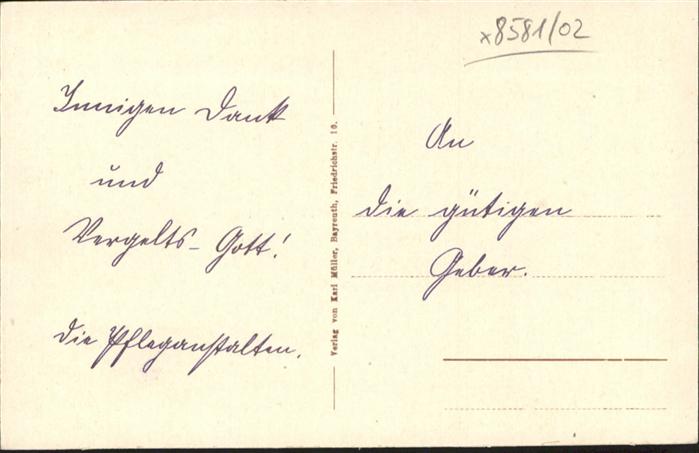 x8581/02
Innigen Dank
und
Vergelts-Gott!
die Pfleganstalten.
Verlag von Karl Müller, Bayreuth, Friedrichstr. 10.
An
die gütigen
Geber.